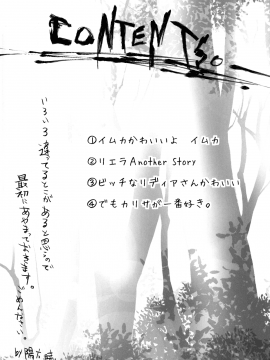 CONTENTS。
①イムカかわいいよ イムカ
②リエラAnother Story
③ビッチなリディアさんかわいい
④でもカリサが一番好き。
いろいろ違ってるとこがあると思うので
最初にあやまっておきます。ごめんなさい。
by